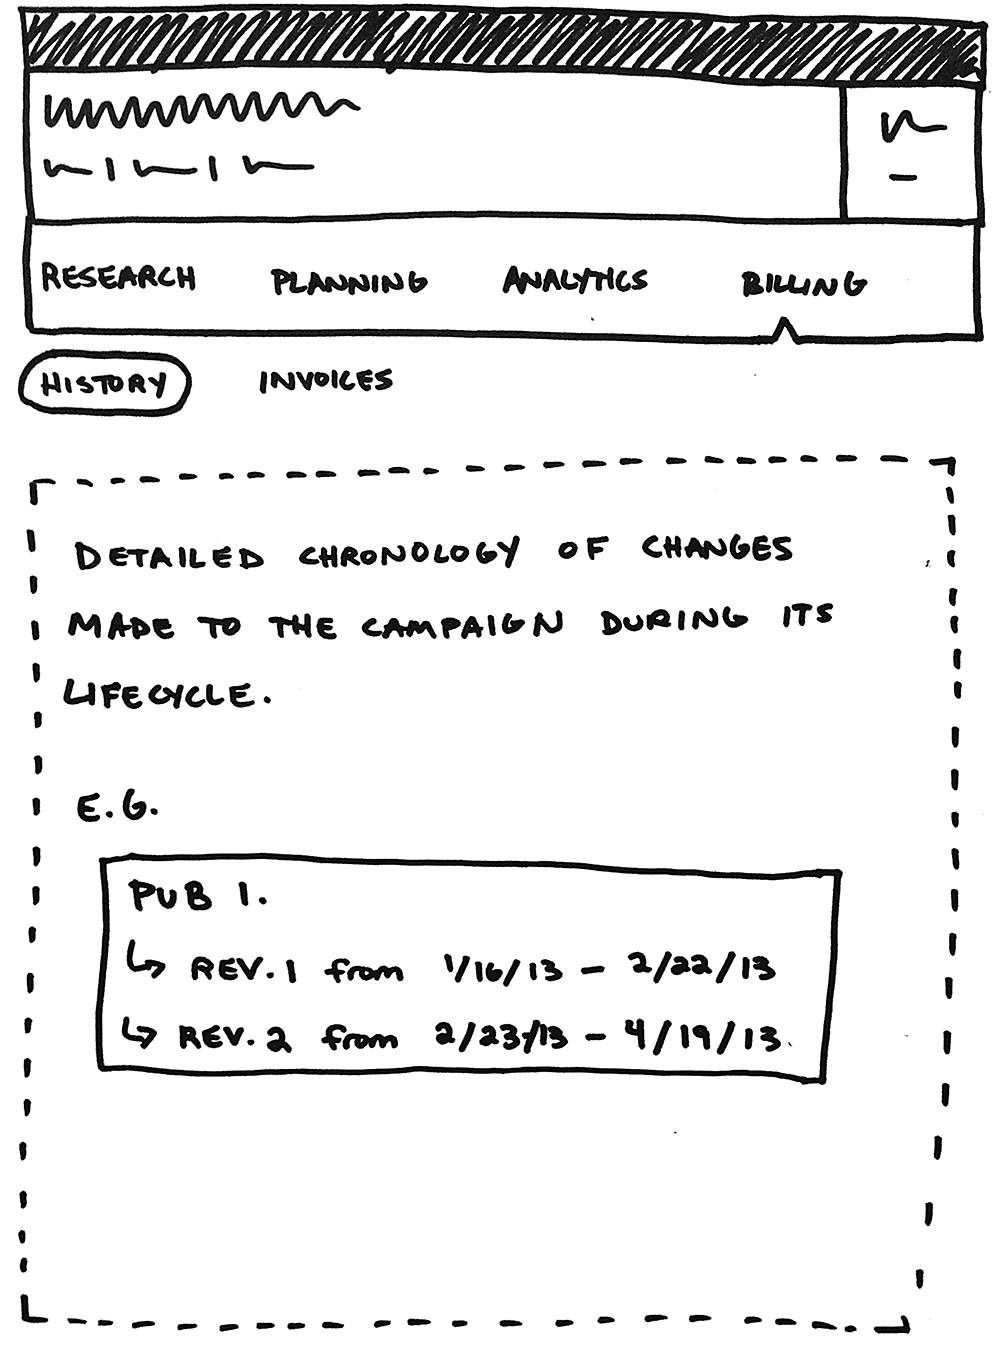 RESEARCH PLANNING ANALYTICS BILLING
HISTORY INVOICES
DETAILED CHRONOLOGY OF CHANGES
MADE TO THE CAMPAIGN DURING ITS
LIFECYCLE.
E.G.
PUB 1.
↳ REV. 1 from 1/16/13 - 2/22/13
↳ REV. 2 from 2/23/13 - 4/19/13